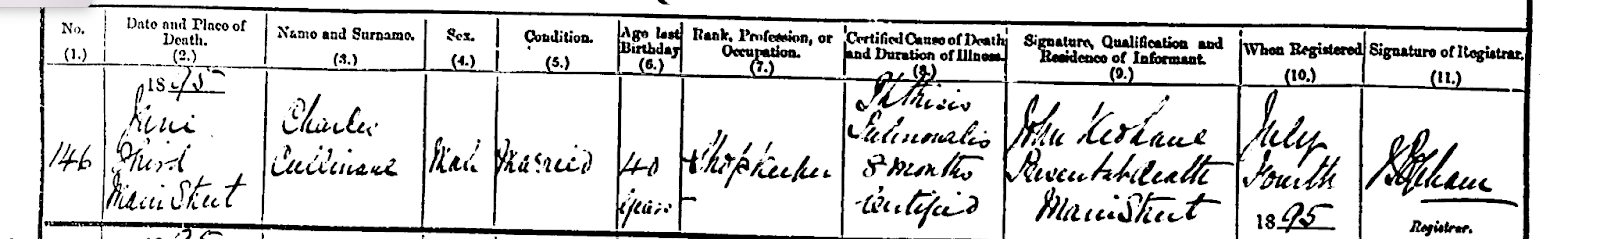 No. (1.)
Date and Place of Death. (2.)
Name and Surname. (3.)
Sex. (4.)
Condition. (5.)
Age last Birthday (6.)
Rank, Profession, or Occupation. (7.)
Certified Cause of Death and Duration of Illness. (8.)
Signature, Qualification and Residence of Informant. (9.)
When Registered (10.)
Signature of Registrar. (11.)
146
1895
June
Third
Main Street
Charles
Cullinane
Male
Married
40
years
Shopkeeper
Phthisis
Pulmonalis
8 months
Certified
John Keohane
Present at death
Main Street
July
Fourth
1895
Registrar.